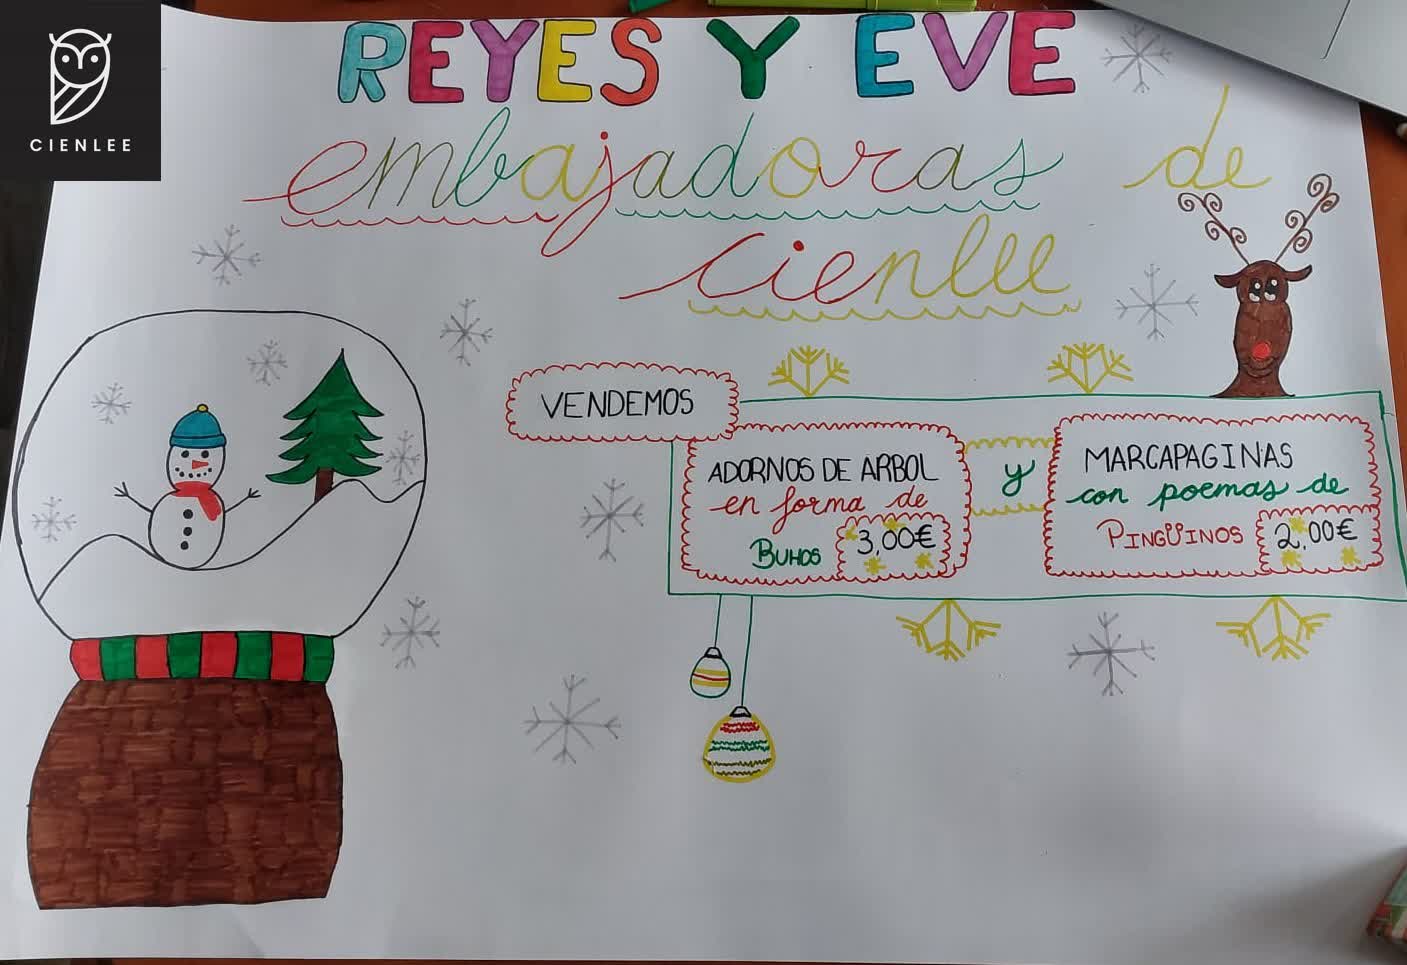 CIENLEE
REYES Y EVE
embajadoras de
cienlee
VENDEMOS
ADORNOS DE ARBOL
en forma de
BUHOS 3,00€
y
MARCAPAGINAS
con poemas de
PINGÜINOS 2,00€